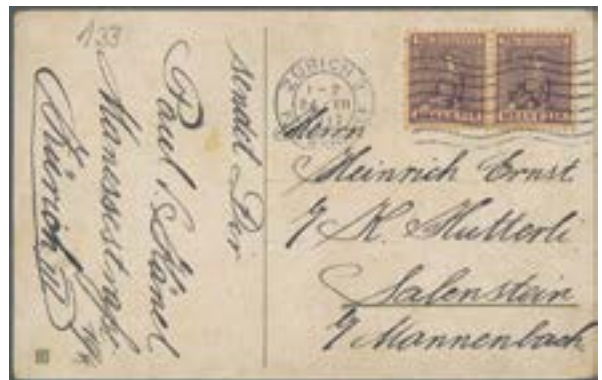 133
sendet Dir
Paul
Manessestraße
Zürich III
ZÜRICH
HELVETIA HELVETIA
Herrn
Heinrich Ernst
K. Hutterli
Salenstein
Mannenbach